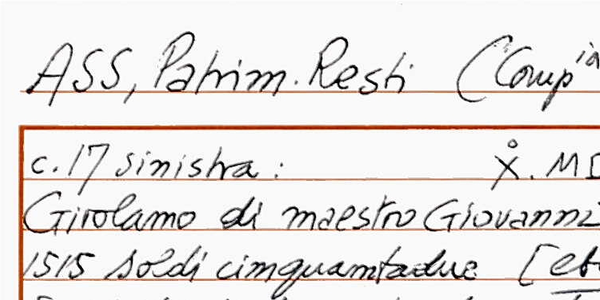 ASS, Patrim. Resti (Comp
c. 17 sinistra: X. MD
Girolamo di maestro Giovanni
1515 soldi cinquantadue [